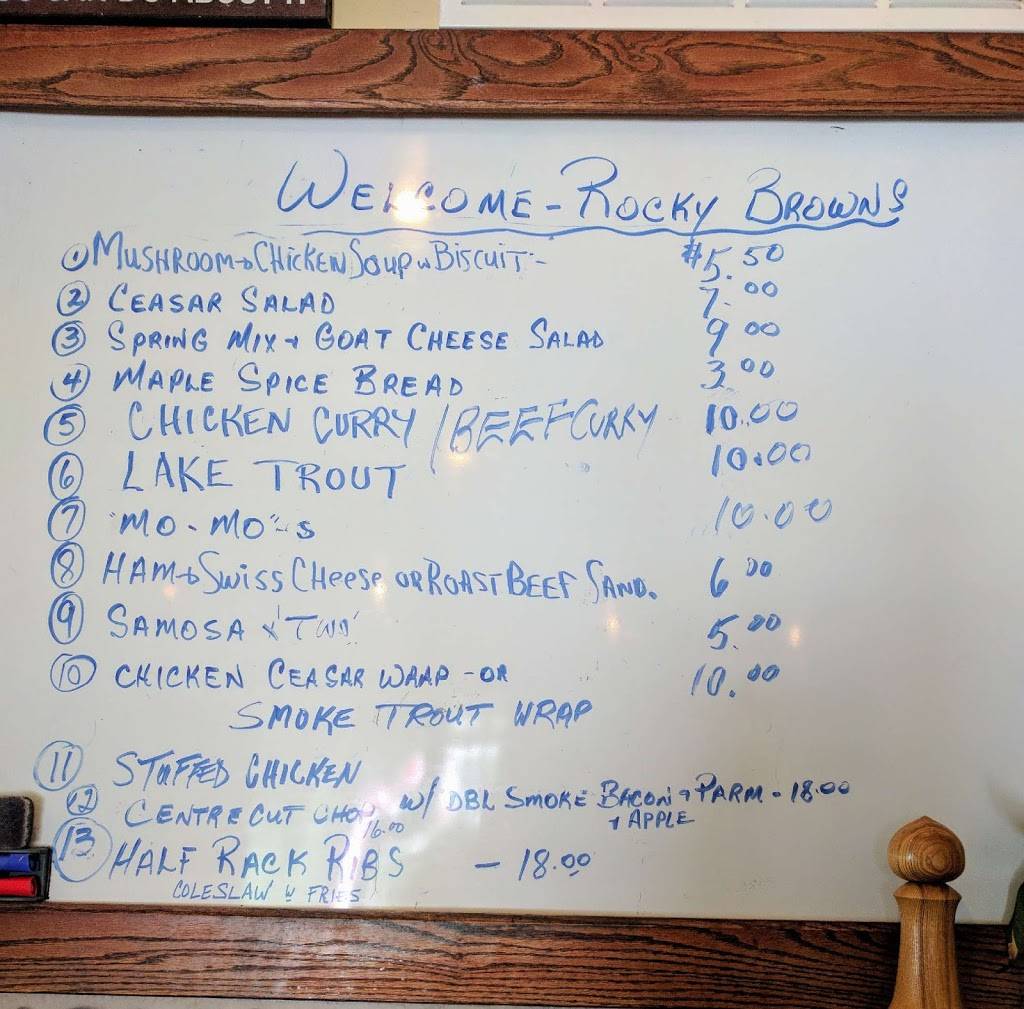 WELCOME - ROCKY BROWNS
① MUSHROOM + CHICKEN SOUP w BISCUIT - $5.50
② CEASAR SALAD 7.00
③ SPRING MIX + GOAT CHEESE SALAD 9.00
④ MAPLE SPICE BREAD 3.00
⑤ CHICKEN CURRY / BEEF CURRY 10.00
⑥ LAKE TROUT 10.00
⑦ "MO-MO"-s 10.00
⑧ HAM + SWISS CHEESE OR ROAST BEEF SAND. 6.00
⑨ SAMOSA x 'TWO' 5.00
⑩ CHICKEN CEASAR WRAP - OR 10.00
SMOKE TROUT WRAP
⑪ STUFFED CHICKEN
w/ DBL SMOKE BACON + PARM - 18.00
+ APPLE
⑫ CENTRE CUT CHOP
16.00
⑬ HALF RACK RIBS - 18.00
COLESLAW w FRIES